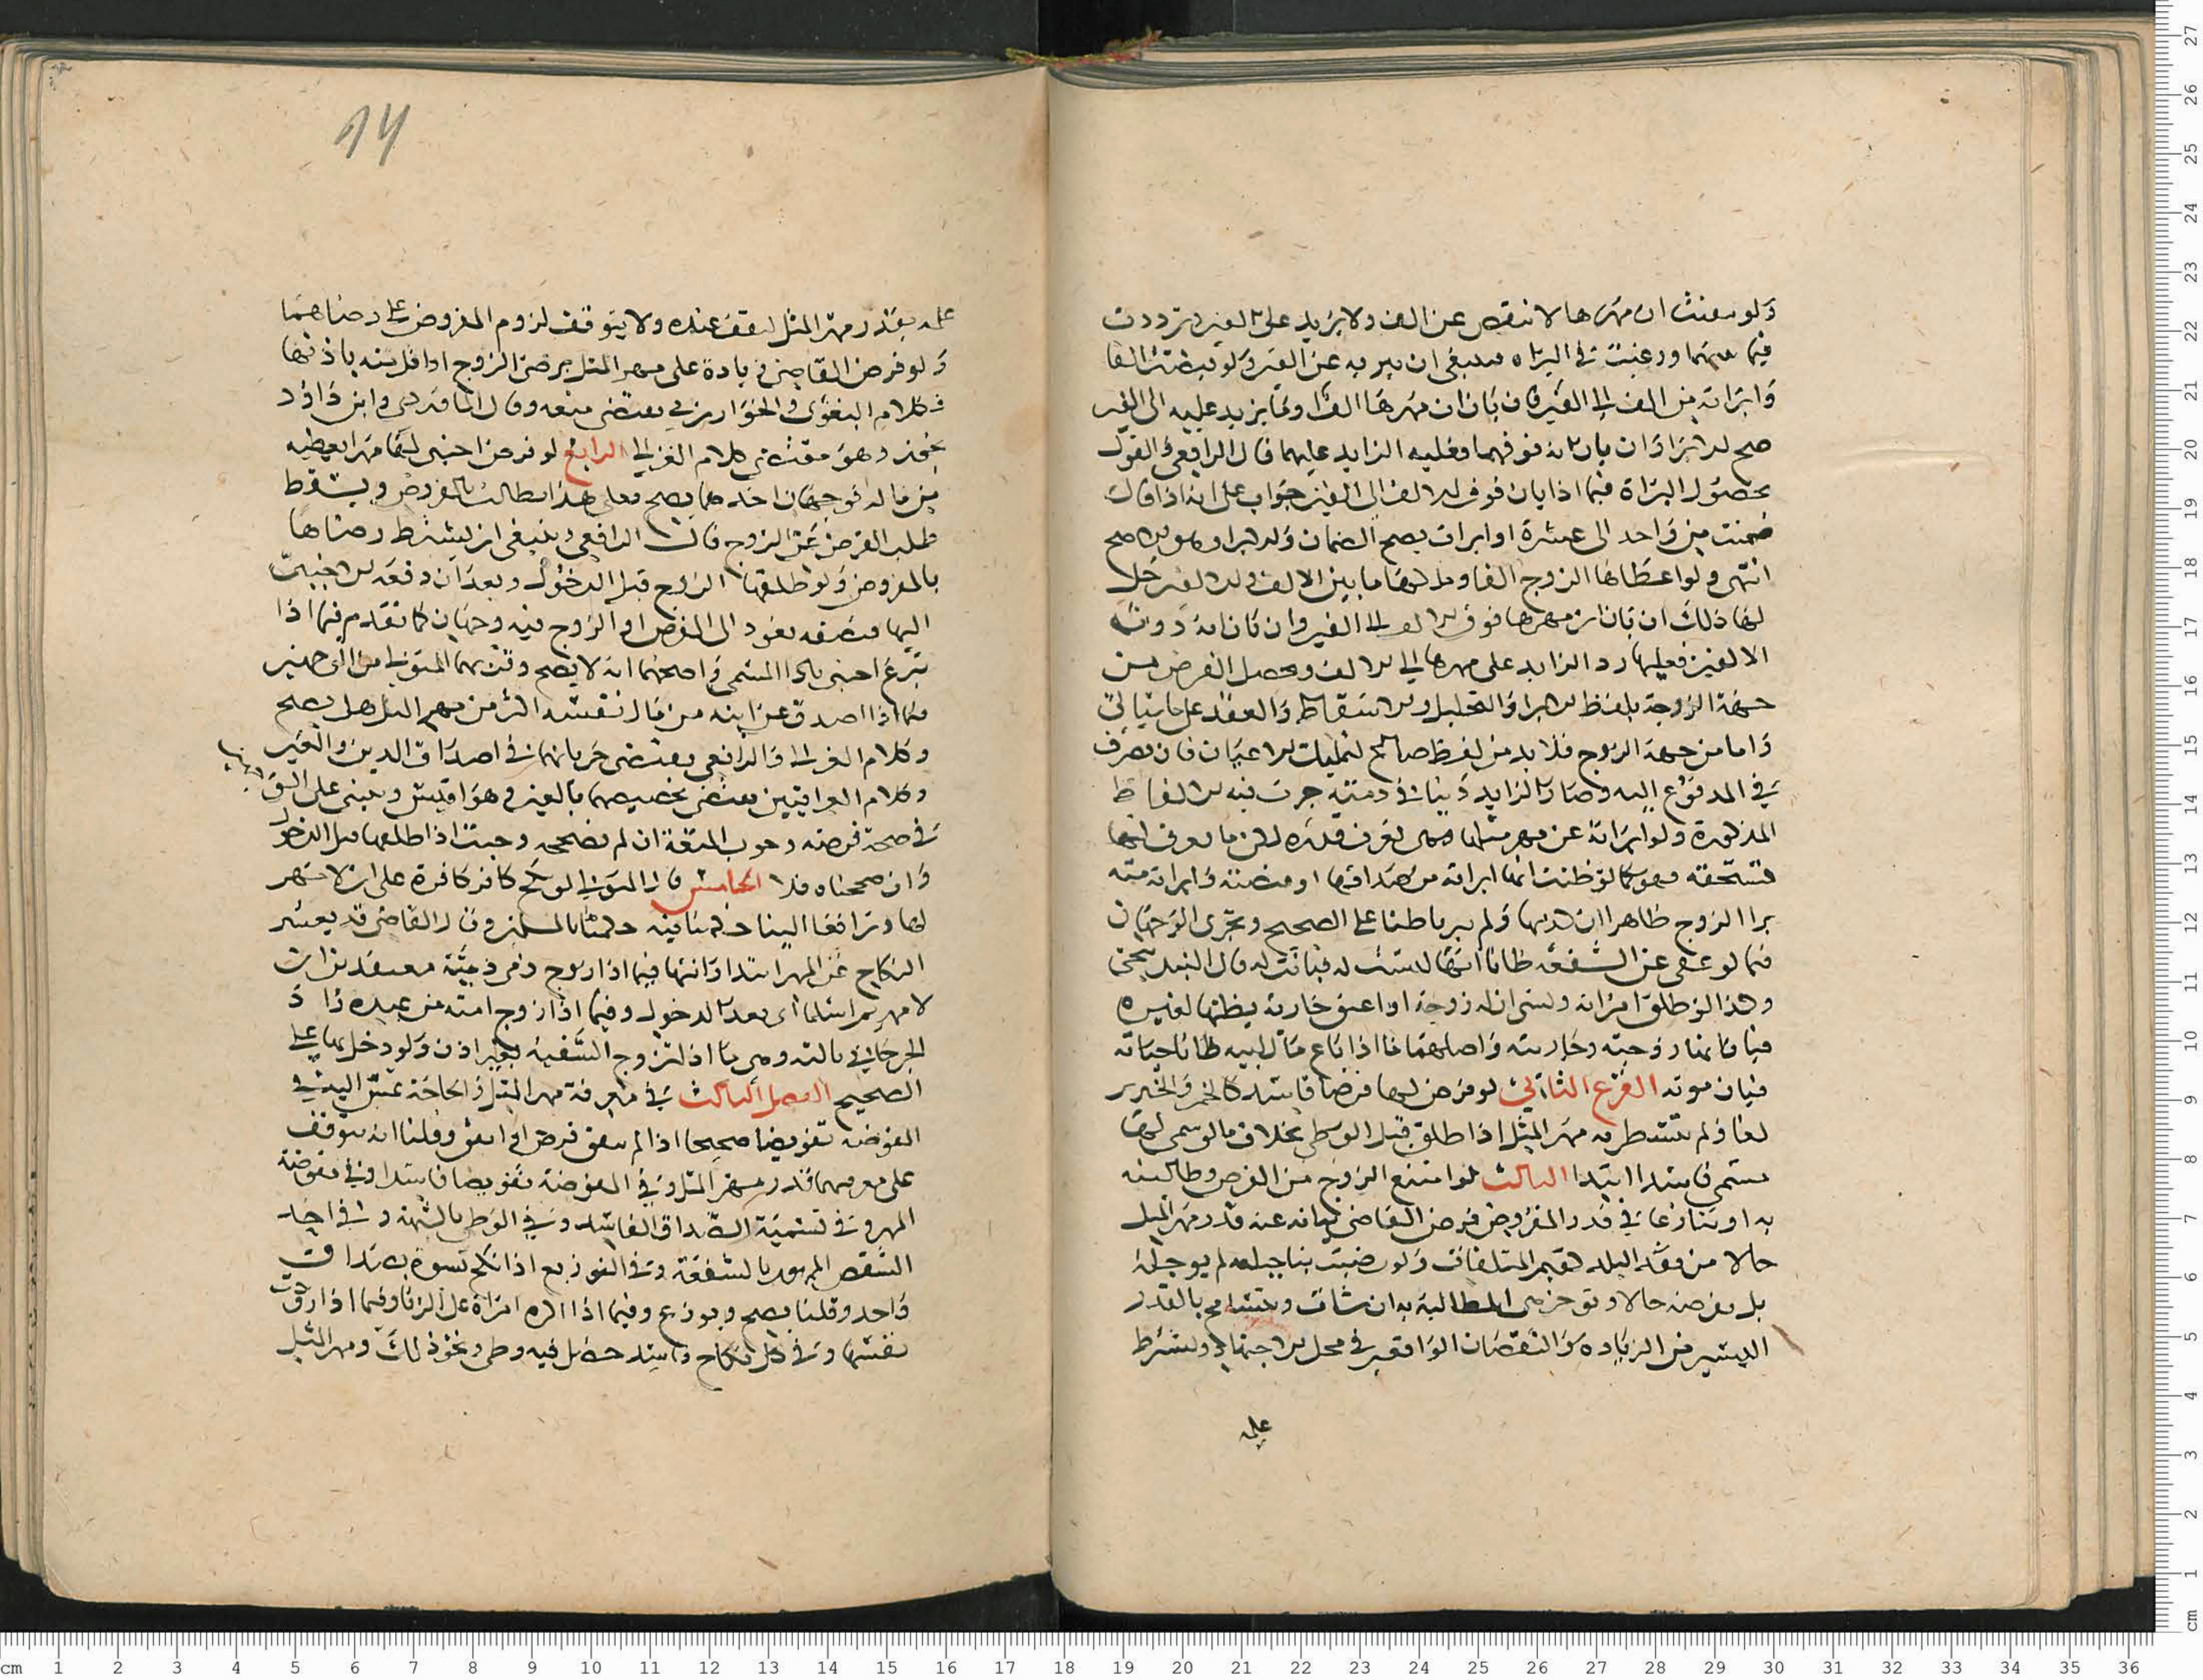 ولو تيقنت ان مهرها لا ينقص عن الف ولا يزيد على الفين وترددت
فيما بينهما ورغبت في البراه فينبغي ان يبريه عن الفين ولو قبضت الفا
وابراته من الف الى الفين فان بان ان مهرها الف او ما يزيد عليه الى الفين
صح الابرا وان بان انه فوقهما فعليه الزايد عليهما قال الرافعي والقول
بحصول البراة فيما اذا بان فوق الالف الى الفين جواب على انه اذا قال
ضمنت من واحد الى عشرة او ابرات يصح الضمان والابرا وهو الاصح
انتهى ولو اعطاها الزوج الفا وملكها ما بين الالف والالفين حل
لها ذلك ان بان ان مهرها فوق الالف الى الفين وان بان انه دون
الالفين فعليها رد الزايد على مهرها الى الالف ويحصل الغرض من
جهة الزوجة بلفظ الابرا والتحليل والاسقاط والعفو على ما سياتي
واما من جهة الزوج فلا بد من لفظ صالح لتمليك الاعيان فان تصرف
في المدفوع اليه وصار الزايد دينا في ذمته جرت فيه الالفاظ
المذكورة ولو ابراته عن مهر مثلها وهي تعرف قدره لكن ما تعرف انها
تستحقه فهو كما لو ظنت انها ابراته من صداقها او قبضته وابراته منه
برا الزوج ظاهرا ان كذبها ولم يبر باطنا على الصحيح وتجرى الوجهان
فيما لو عفى عن الشفعة ظانا انها ليست له فبانت له قال البندنيجي
وكذا لو طلق امراة ونسي ان له زوجة او اعتق جارية يظنها لغيره
فبانتا زوجته وجاريته واصلهما ما اذا باع مال ابيه ظانا حياته
فبان موته الفرع الثاني لو فرض لها فرضا فاسدا كالخمر والخنزير
لغا ولم يتشطر به مهر المثل اذا طلق قبل الوطي بخلاف ما لو سمى لها
مسمى فاسدا ابتدا الثالث لو امتنع الزوج من الفرض وطالبته
به او تنازعا في قدر المفروض فرض القاضي نيابة عنه قدر مهر المثل
حالا من نقد البلد كقيم المتلفات ولو رضيت بتاجيله لم يوجله
بل يفرضه حالا وتوخر هي المطالبة به ان شات ويتسامح بالقدر
اليسير من الزيادة والنقصان الواقع في محل الاجتهاد ويشترط
علمه
14
علمه بقدر مهر المثل ليقف عنده ولا يتوقف لزوم المفروض على رضاهما
ولو فرض القاضي زيادة على مهر المثل برضى الزوج او اقل منه باذنها
فكلام البغوي والخوارزمي يقتضي منعه وقال الماوردي وابن داود
يجوز وهو مقتضى كلام الغزالي الرابع لو فرض اجنبي لها مهرا يعطيه
من ماله فوجهان احدهما يصح فعلى هذا يطالب بالمفروض ويسقط
طلب الفرض عن الزوج قال الرافعي وينبغي ان يشترط رضاها
بالمفروض ولو طلقها الزوج قبل الدخول وبعد ان دفعه الاجنبي
اليها فنصفه يعود الى المفرض او الزوج فيه وجهان كما تقدم فيما اذا
تبرع اجنبي بادا المسمى واصحهما انه لا يصح وقربهما المتولي من الوجهين
فيما اذا اصدق عن ابنه من مال نفسه اكثر من مهر المثل هل يصح
وكلام الغزالي والرافعي يقتضي جريانهما في اصداق الدين والعين
وكلام العراقيين يقتضي تخصيصهما بالعين وهو اقيس ويبنى على الوجهين
في صحة فرضه وجوب المتعة ان لم نصححه وجبت اذا طلقها قبل الدخول
وان صححناه فلا الخامس قال المتولي لو نكح كافر كافرة على ان لا مهر
لها وترافعا الينا حكمنا فيه حكمنا بالمسلمين وقال القاضي قد يعتبر
النكاح عن المهر ابتدا وانتها فيما اذا زوج ذمي ذمية معتقدين ان
لا مهر ثم اسلما اي بعد الدخول وفيما اذا زوج امته من عبده زاد
الجرجاني ثالثه وهي ما اذا تزوج السفيه بغير اذن ولو دخل بها على
الصحيح الفصل الثالث في معرفة مهر المثل والحاجة تمس اليه في
المفوضه تفويضا صحيحا اذا لم يتفق فرض او اتفق وقلنا انه يتوقف
على معرفتهما قدر مهر المثل وفي المفوضة تفويضا فاسدا وفي مفوضة
المهر وفي تسمية الصداق الفاسد وفي الوطي بالشبهة وفي اخذ
الشقص الممهور بالشفعة وفي التوزيع اذا نكح نسوة بصداق
واحد وقلنا يصح ويوزع وفيما اذا اكره امراة على الزنا وفيما اذا رقت
نفسها وفي كل نكاح فاسد حصل فيه وطي ونحو ذلك ومهر المثل